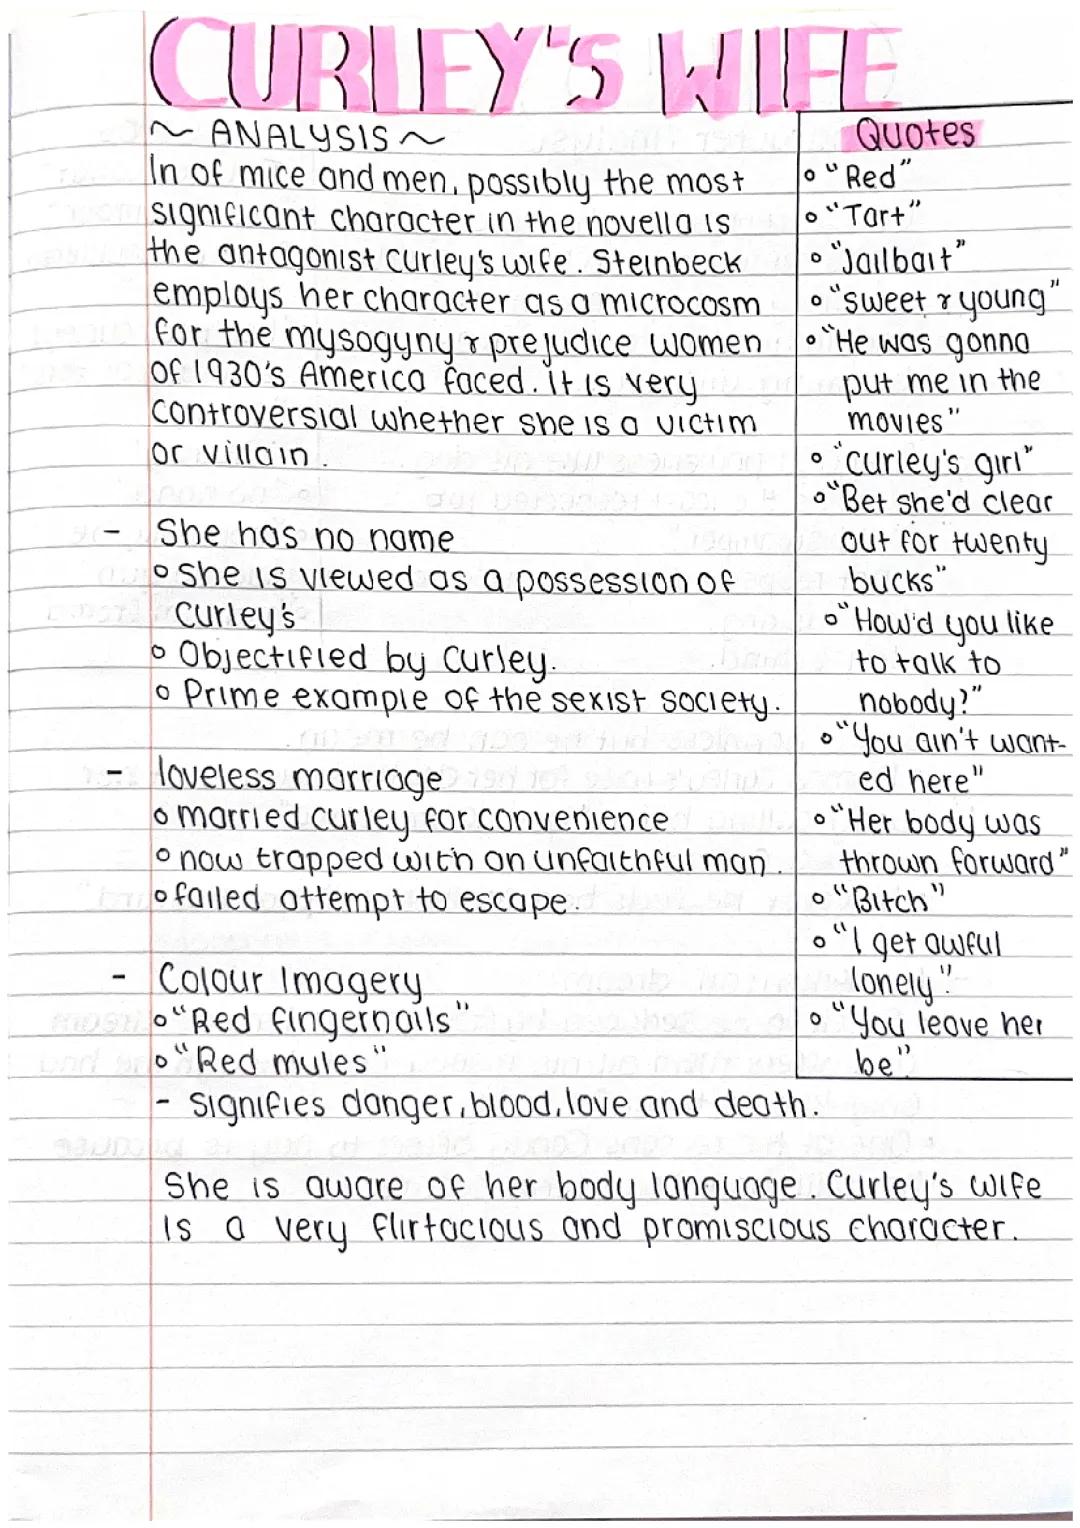 CURLEY'S WIFE
~ ANALYSIS ~
In of mice and men, possibly the most
significant character in the novella is
the antagonist curley's wife. Steinbeck
employs her character as a microcosm
for the mysogyny & prejudice women
of 1930's America faced. It is very
controversial whether she is a victim
or villain.
- She has no name
o She is viewed as a possession of
curley's
o Objectified by curley.
o Prime example of the sexist society.
- loveless marriage
o married curley for convenience
o now trapped with an unfaithful man.
o failed attempt to escape.
- Colour Imagery
o "Red fingernails"
o "Red mules"
- signifies danger, blood, love and death.
She is aware of her body language. Curley's wife
is a very flirtacious and promiscious character.
Quotes
o "Red"
o "Tart"
o "Jailbait"
o "sweet & young"
o "He was gonna
put me in the
movies"
o "curley's girl"
o "Bet she'd clear
out for twenty
bucks"
o "How'd you like
to talk to
nobody?"
o "You ain't want-
ed here"
o "Her body was
thrown forward"
o "Bitch"
o "I get awful
lonely".
o "You leave her
be".